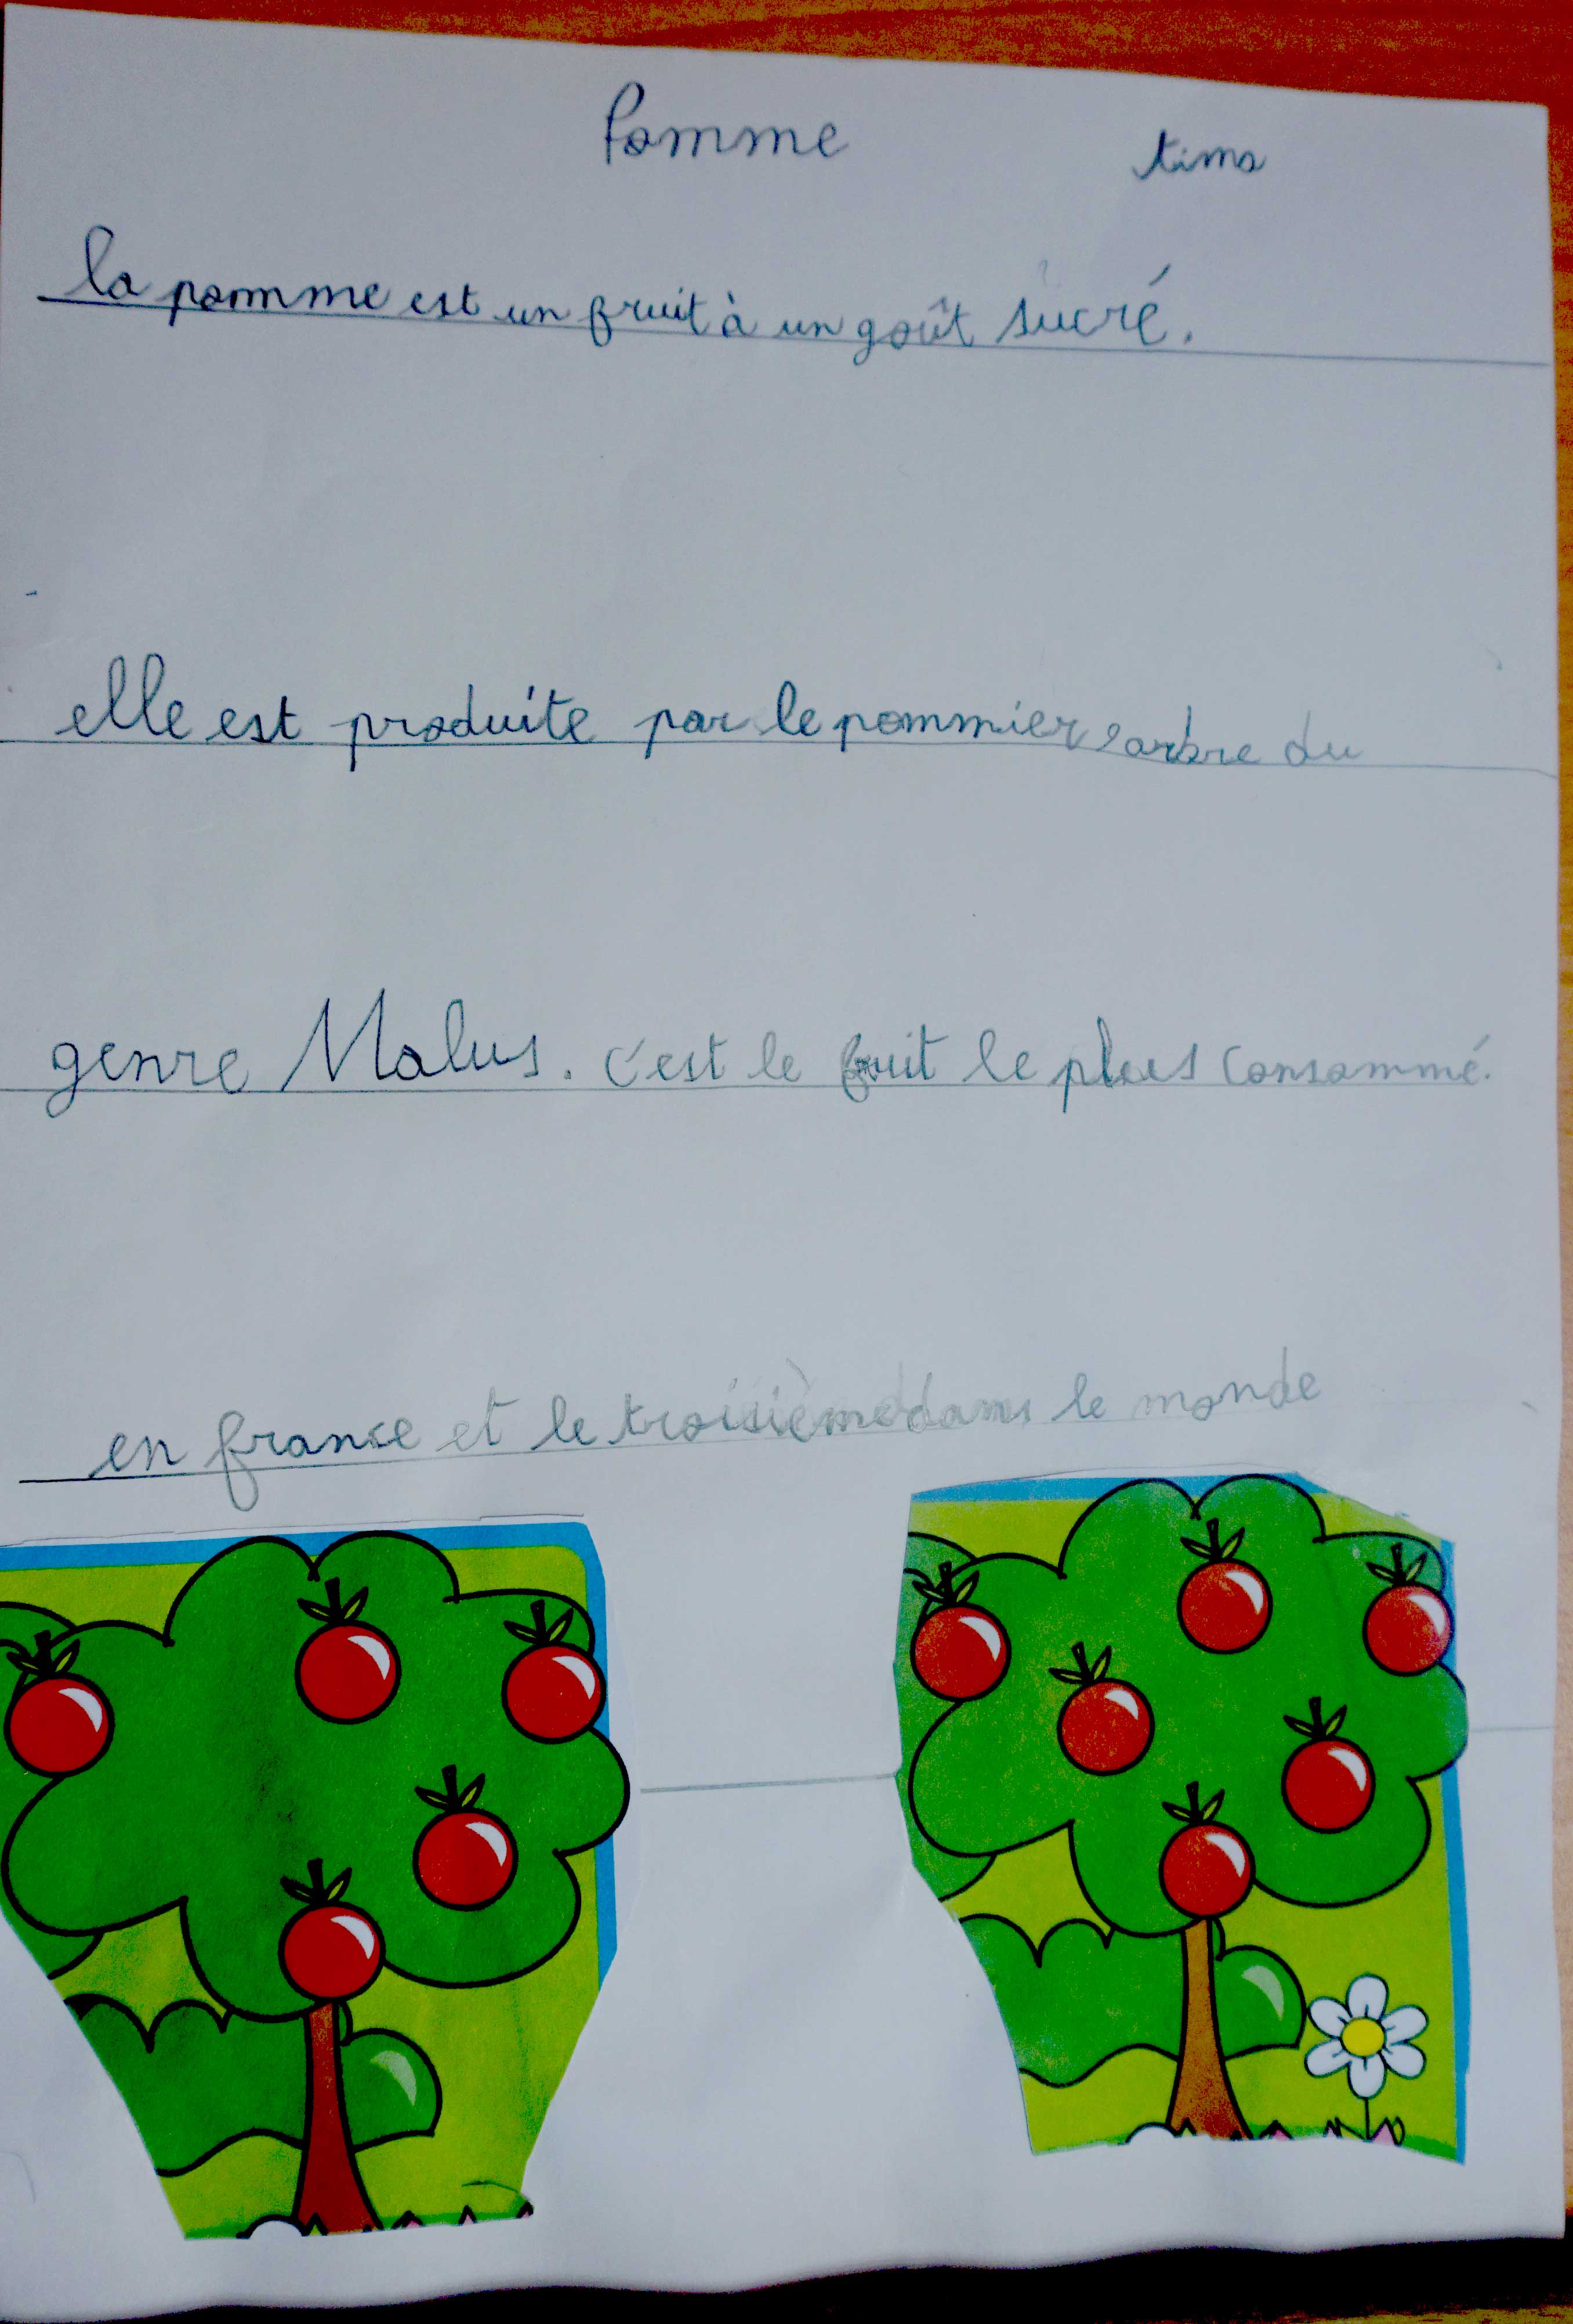 Pomme
tima
la pomme est un fruit à un goût sucré.
elle est produite par le pommier, arbre du
genre Malus. c'est le fruit le plus consommé.
en france et le troisième dans le monde